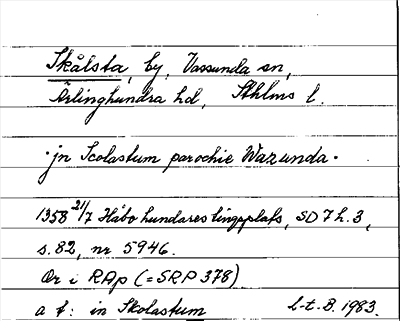 Skålsta, by, Vassunda sn,
Ärlinghundra hd, Sthlms l.
· jn Scolastum parochie Wazunda ·
1358 21/7 Håbo hundares tingsplats, SD 7 h. 3,
s. 82, nr 5946.
Or i RAp (= SRP 378)
a t: in Skolastum L-t. B. 1983.